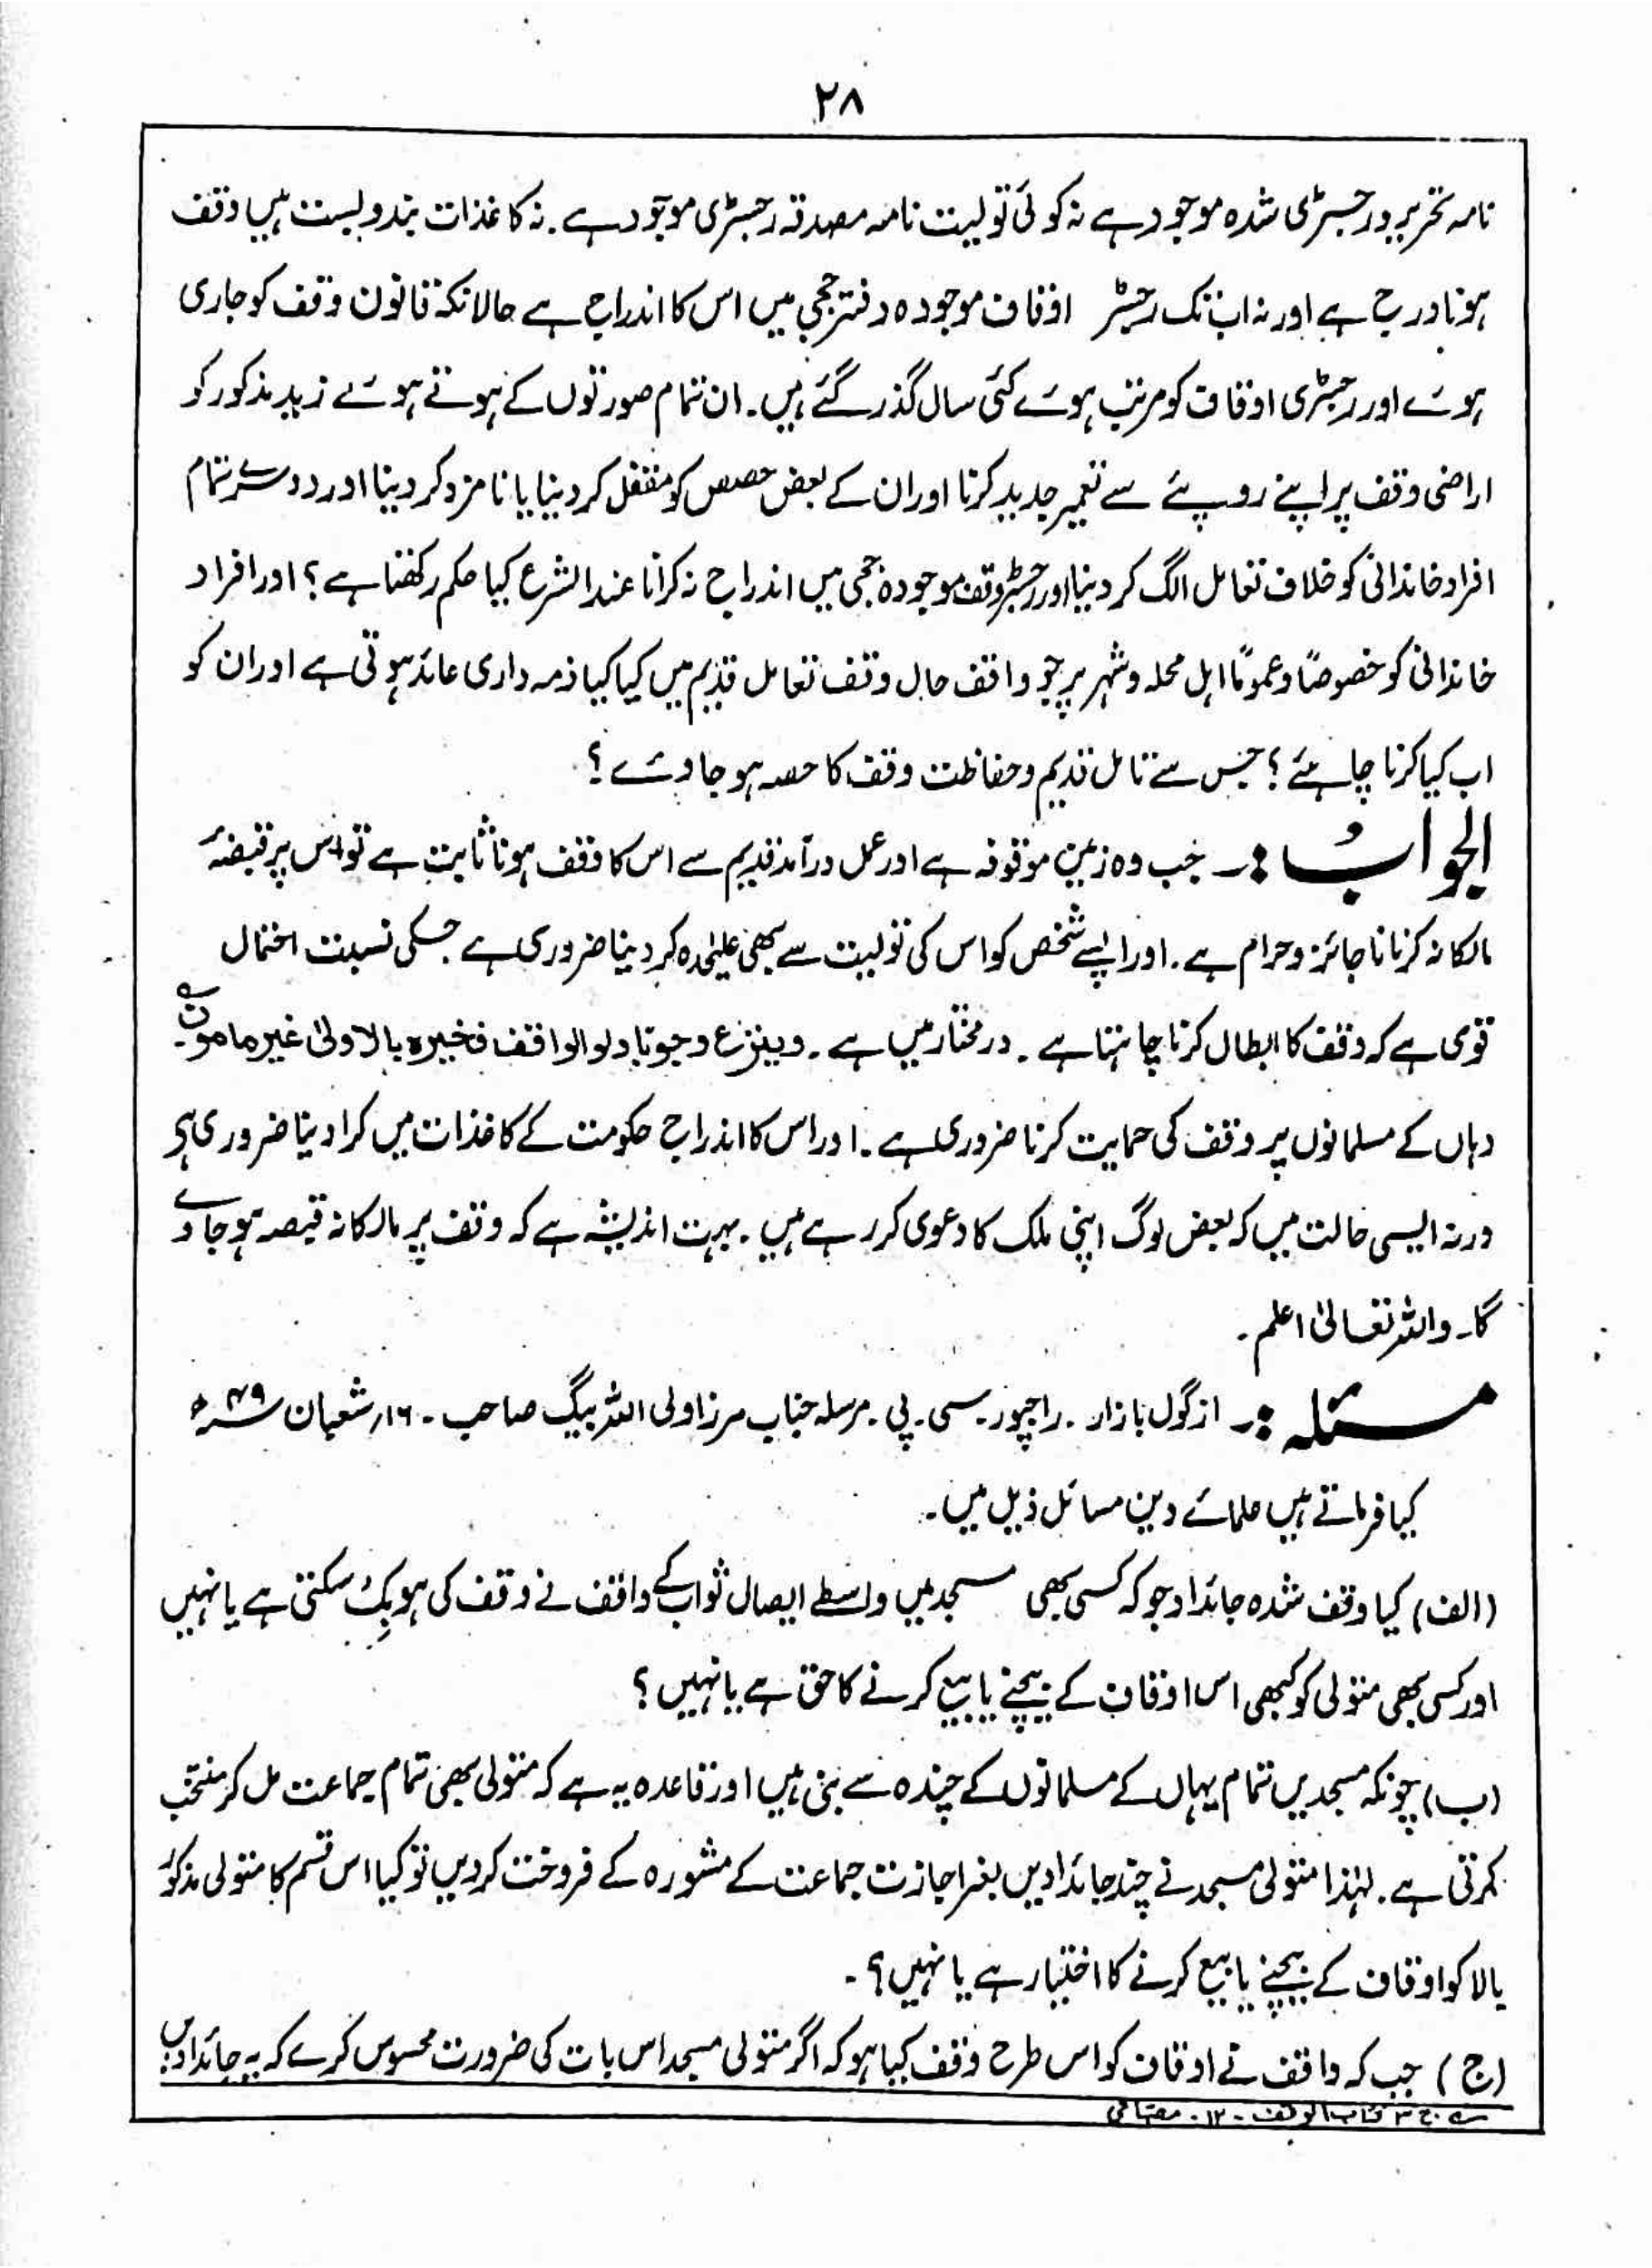 ۲۸
نامہ تحریر ور جسٹری شدہ موجود ہے نہ کوئی تولیت نامہ مصدقہ رجسٹری موجود ہے۔ نہ کاغذات بندوبست میں وقف
ہونا درج ہے اور نہ اب تک رجسٹر اوقاف موجودہ دفتر ججی میں اس کا اندراج ہے حالانکہ قانون وقف کو جاری
ہوئے اور رجسٹری اوقاف کو مرتب ہوئے کئی سال گذر گئے ہیں۔ ان تمام صورتوں کے ہوتے ہوئے زید مذکور کو
اراضی وقف پر اپنے روپئے سے تعمیر جدید کرنا اور ان کے بعض حصص کو مقفل کر دینا یا نامزد کر دینا اور دوسرے تمام
افراد خاندانی کو خلاف تعامل الگ کر دینا اور رجسٹر وقف موجودہ ججی میں اندراج نہ کرانا عند الشرع کیا حکم رکھتا ہے؟ اور افراد
خاندانی کو خصوصًا و عمومًا اہل محلہ و شہر پر جو واقف حال وقف تعامل قدیم ہیں کیا کیا ذمہ داری عائد ہوتی ہے اور ان کو
اب کیا کرنا چاہئے؟ جس سے تامل قدیم و حفاظت وقف کا حصہ ہو جاوئے؟
الجوابُ :۔ جب وہ زمین موقوفہ ہے اور عمل درآمد قدیم سے اس کا وقف ہونا ثابت ہے تو اس پر قبضۂ
مالکانہ کرنا ناجائز و حرام ہے۔ اور ایسے شخص کو اس کی تولیت سے بھی علیٰحدہ کر دینا ضروری ہے جسکی نسبت احتمال
قوی ہے کہ وقف کا ابطال کرنا چاہتا ہے۔ درمختار میں ہے۔ وینزع وجوبًا ولو الواقف فخیرہ بالاولیٰ غیر مامون۔
وہاں کے مسلمانوں پر وقف کی حمایت کرنا ضروری ہے۔ اور اس کا اندراج حکومت کے کاغذات میں کرا دینا ضروری ہے
ورنہ ایسی حالت میں کہ بعض لوگ اپنی ملک کا دعوی کر رہے ہیں۔ بہت اندیشہ ہے کہ وقف پر مالکانہ قبضہ ہو جاوے
گا۔ واللہ تعالیٰ اعلم۔
مسئلہ :۔ از گول بازار۔ راجپور۔ سی۔ پی۔ مرسلہ جناب مرزا ولی اللہ بیگ صاحب۔ ۱۶؍ شعبان ۴۹ ؁ھ
کیا فرماتے ہیں علمائے دین مسائل ذیل میں۔
(الف) کیا وقف شدہ جائداد جو کہ کسی بھی مسجد میں واسطے ایصال ثواب کے واقف نے وقف کی ہو بِک سکتی ہے یا نہیں
اور کسی بھی متولی کو کبھی اس اوقاف کے بیچنے یا بیع کرنے کا حق ہے یا نہیں؟
(ب) چونکہ مسجدیں تمام یہاں کے مسلمانوں کے چندہ سے بنی ہیں اور قاعدہ یہ ہے کہ متولی بھی تمام جماعت مل کر منتخب
کرتی ہے۔ لہٰذا متولی مسجد نے چند جائدادیں بغیر اجازت جماعت کے مشورہ کے فروخت کر دیں تو کیا اس قسم کا متولی مذکورُ
بالا کو اوقاف کے بیچنے یا بیع کرنے کا اختیار ہے یا نہیں؟۔
(ج) جب کہ واقف نے اوقاف کو اس طرح وقف کیا ہو کہ اگر متولی مسجد اس بات کی ضرورت محسوس کرے کہ یہ جائدادیں
ج ۳ کتاب الوقف۔ ۱۲۔ مصباحی